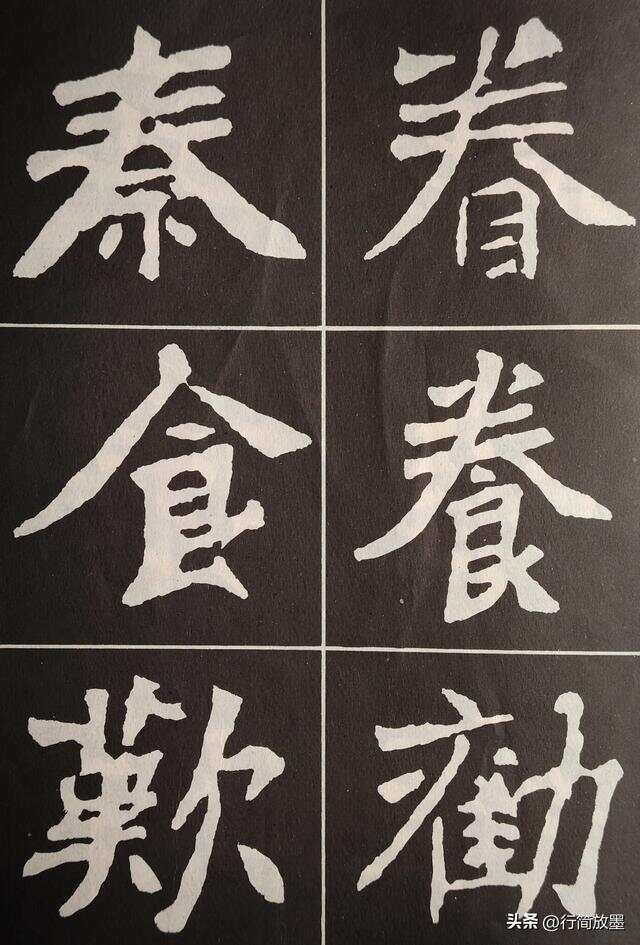 眷養勸
秦食歎
头条 @行简放墨